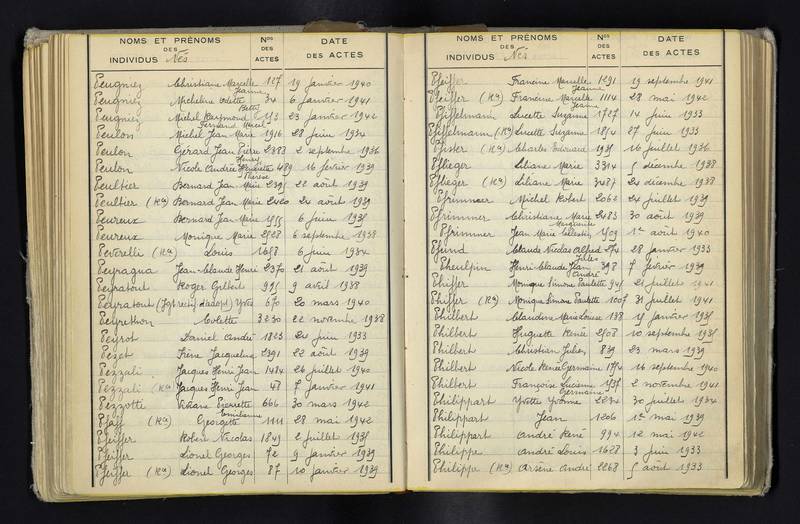 NOMS ET PRÉNOMS DES INDIVIDUS Nés
Nos DES ACTES
DATE DES ACTES
Peugniez Christiane Marcelle Jeanne 127 19 janvier 1940
Peugniez Micheline Odette Betty 34 6 janvier 1941
Peugniez Michel Raymond Fernand Marcel 23 janvier 1942
Peulon Michel Jean Marie 1916 28 juin 1934
Peulon Gérard Jean Pierre 2383 2 septembre 1936
Peulon Nicole Andrée Henriette Thérèse 489 16 février 1939
Peultier Bernard Jean Marie 2395 22 août 1939
Peultier (Ron) Bernard Jean Marie 2420 24 août 1939
Peureux Bernard Jean Marie 6 juin 1935
Peureux Monique Marie 2528 6 septembre 1938
Peverelli Louis 1658 6 juin 1934
Peyragua Jean Claude Henri 2370 21 août 1939
Peyratout Roger Gilbert 995 9 avril 1938
Peyratout Yves 670 20 mars 1940
Peyrethon Colette 3230 22 novembre 1938
Peyrot Daniel André 1823 24 juin 1933
Pezet Irène Jacqueline 2391 22 août 1939
Pezzali Jacques Henri Jean 1484 26 juillet 1940
Pezzali Jacques Henri Jean 48 7 janvier 1941
Pezzotti Viviane Pierrette Emilienne 666 30 mars 1942
Pfaff Georgette 1111 28 mai 1942
Pfeiffer Robert Nicolas 1849 2 juillet 1935
Pfeiffer Lionel Georges 72 9 janvier 1939
Pfeiffer Lionel Georges 87 10 janvier 1939
NOMS ET PRÉNOMS DES INDIVIDUS Nés
Nos DES ACTES
DATE DES ACTES
Pfeiffer Francine Marcelle Jeanne 1291 19 septembre 1941
Pfeiffer Francine Marcelle Jeanne 1114 28 mai 1942
Pfiffelmann Lucette Suzanne 1727 14 juin 1933
Pfiffelmann Lucette Suzanne 1854 27 juin 1933
Pfister Charles Edouard 1935 16 juillet 1936
Pflieger Liliane Marie 3314 5 décembre 1938
Pflieger Liliane Marie 3487 24 décembre 1938
Pfrimmer Michel Robert 2062 24 juillet 1939
Pfrimmer Christiane Marie 2483 30 août 1939
Pfrimmer Jean Marie Célestin 1509 1er août 1940
Pfund Claude Nicolas Alfred Jules 274 28 janvier 1933
Pheulpin Henri Claude Jean André 398 7 février 1939
Phiffer Monique Simone Paulette 945 21 juillet 1941
Phiffer Monique Simone Paulette 1005 31 juillet 1941
Philbert Claudine Marie Louise 138 15 janvier 1935
Philbert Huguette Renée 2508 10 septembre 1935
Philbert Christian Julien 839 23 mars 1939
Philbert Nicole Renée Germaine 1754 16 septembre 1940
Philbert Françoise Lucienne Germaine 2 novembre 1941
Philippart Yvette Yvonne 2234 30 juillet 1934
Philippart Jean 1206 1er mai 1939
Philippart André René 994 12 mai 1942
Philippe André Louis 1628 3 juin 1933
Philippe Arsène André 2268 5 août 1933